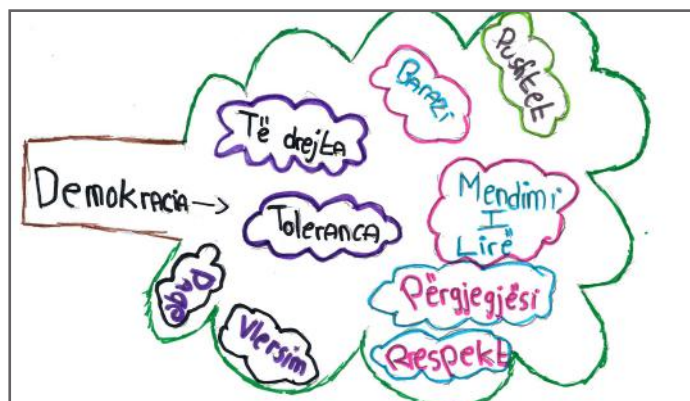 Demokracia →
Të drejta
Toleranca
Barazi
Pushtet
Mendimi
I
Lirë
Përgjegjësi
Rrespekt
Vlersim
Paqe